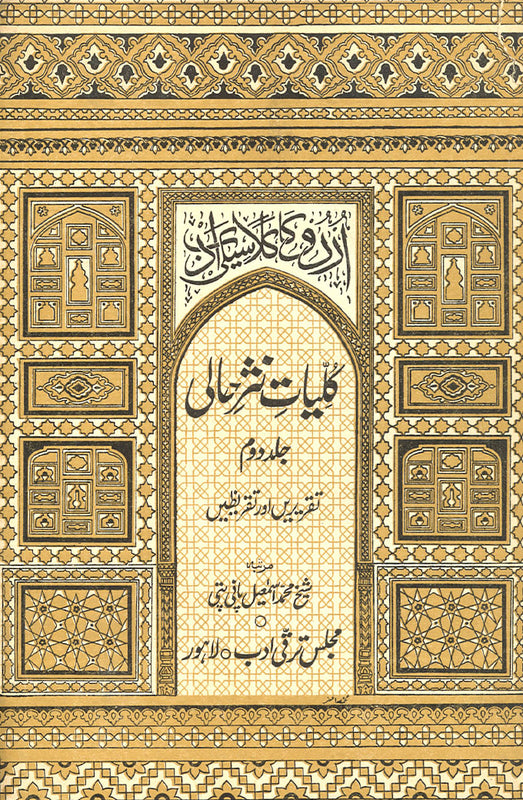 اردو کا کلاسیکی ادب
کُلّیاتِ نثرِ حالی
جلد دوم
تقریریں اور تقریظیں
مرتبہ
شیخ محمد اسمٰعیل پانی پتی
مجلس ترقّی ادب ○ لاہور